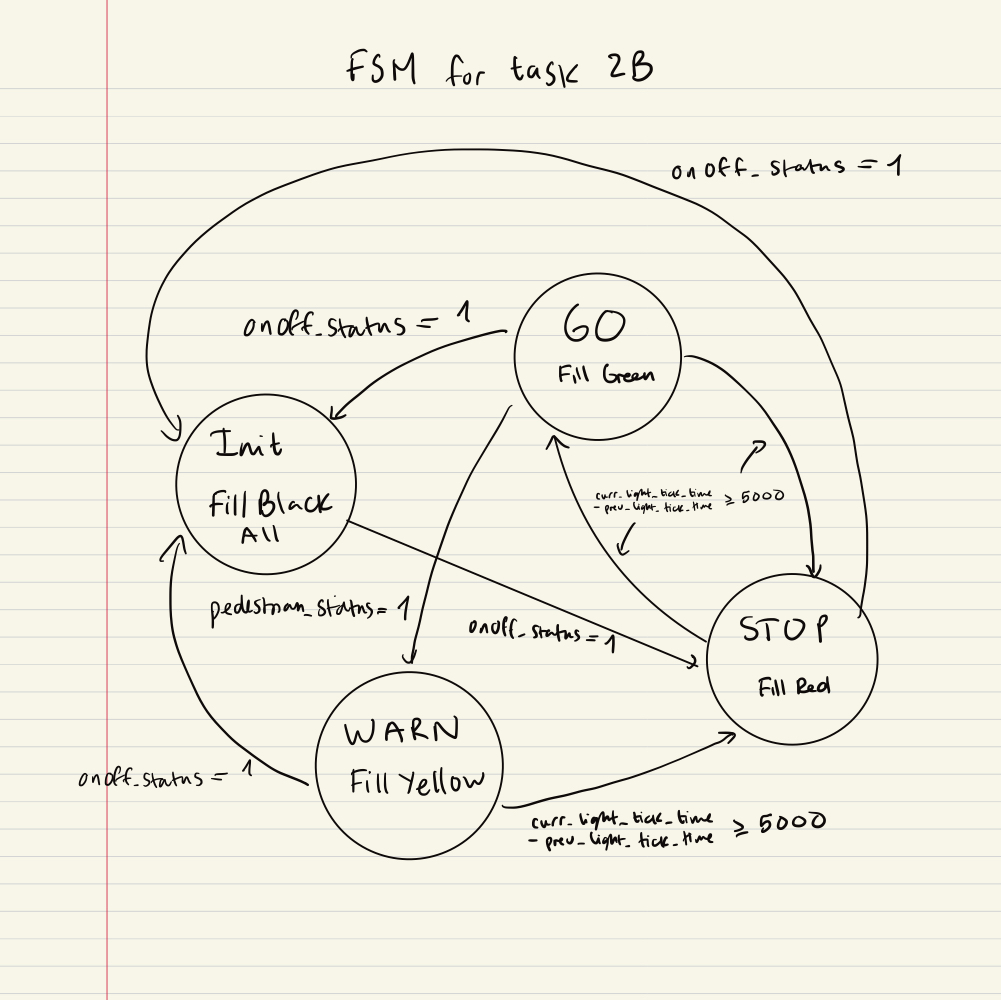 FSM for task 2B
onoff_status = 1
onoff_status = 1
GO
Fill Green
Init
Fill Black
All
curr_light_tick_time
- prev_light_tick_time ≥ 5000
pedestrian_status = 1
onoff_status = 1
STOP
Fill Red
WARN
Fill Yellow
onoff_status = 1
curr_light_tick_time
- prev_light_tick_time ≥ 5000